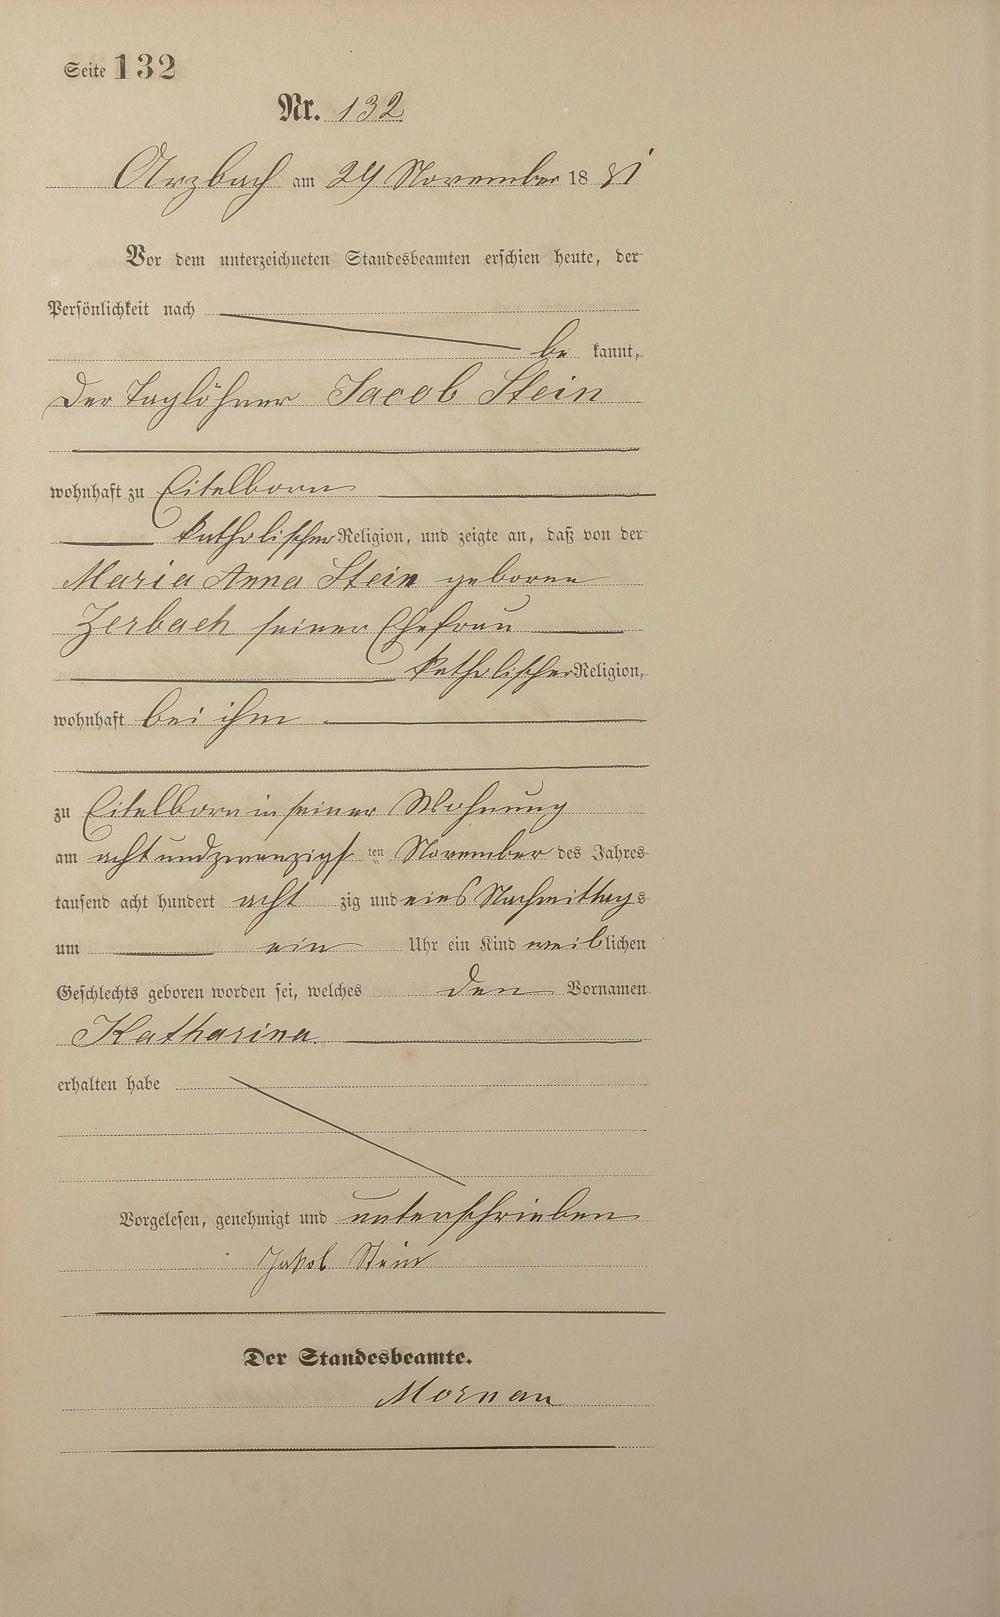 Seite 132
Nr. 132
Arzbach am 29 November 1881
Vor dem unterzeichneten Standesbeamten erschien heute, der
Persönlichkeit nach
be kannt,
der Taglöhner Jacob Stein
wohnhaft zu Eitelborn
katholischer Religion, und zeigte an, daß von der
Maria Anna Stein geborene
Zerbach seiner Ehefrau
katholischer Religion,
wohnhaft bei ihm
zu Eitelborn in seiner Wohnung
am achtundzwanzigsten November des Jahres
tausend acht hundert acht zig und eins Nachmittags
um ein Uhr ein Kind weiblichen
Geschlechts geboren worden sei, welches den Vornamen
Katharina.
erhalten habe
Vorgelesen, genehmigt und unterschrieben
Jakob Stein
Der Standesbeamte.